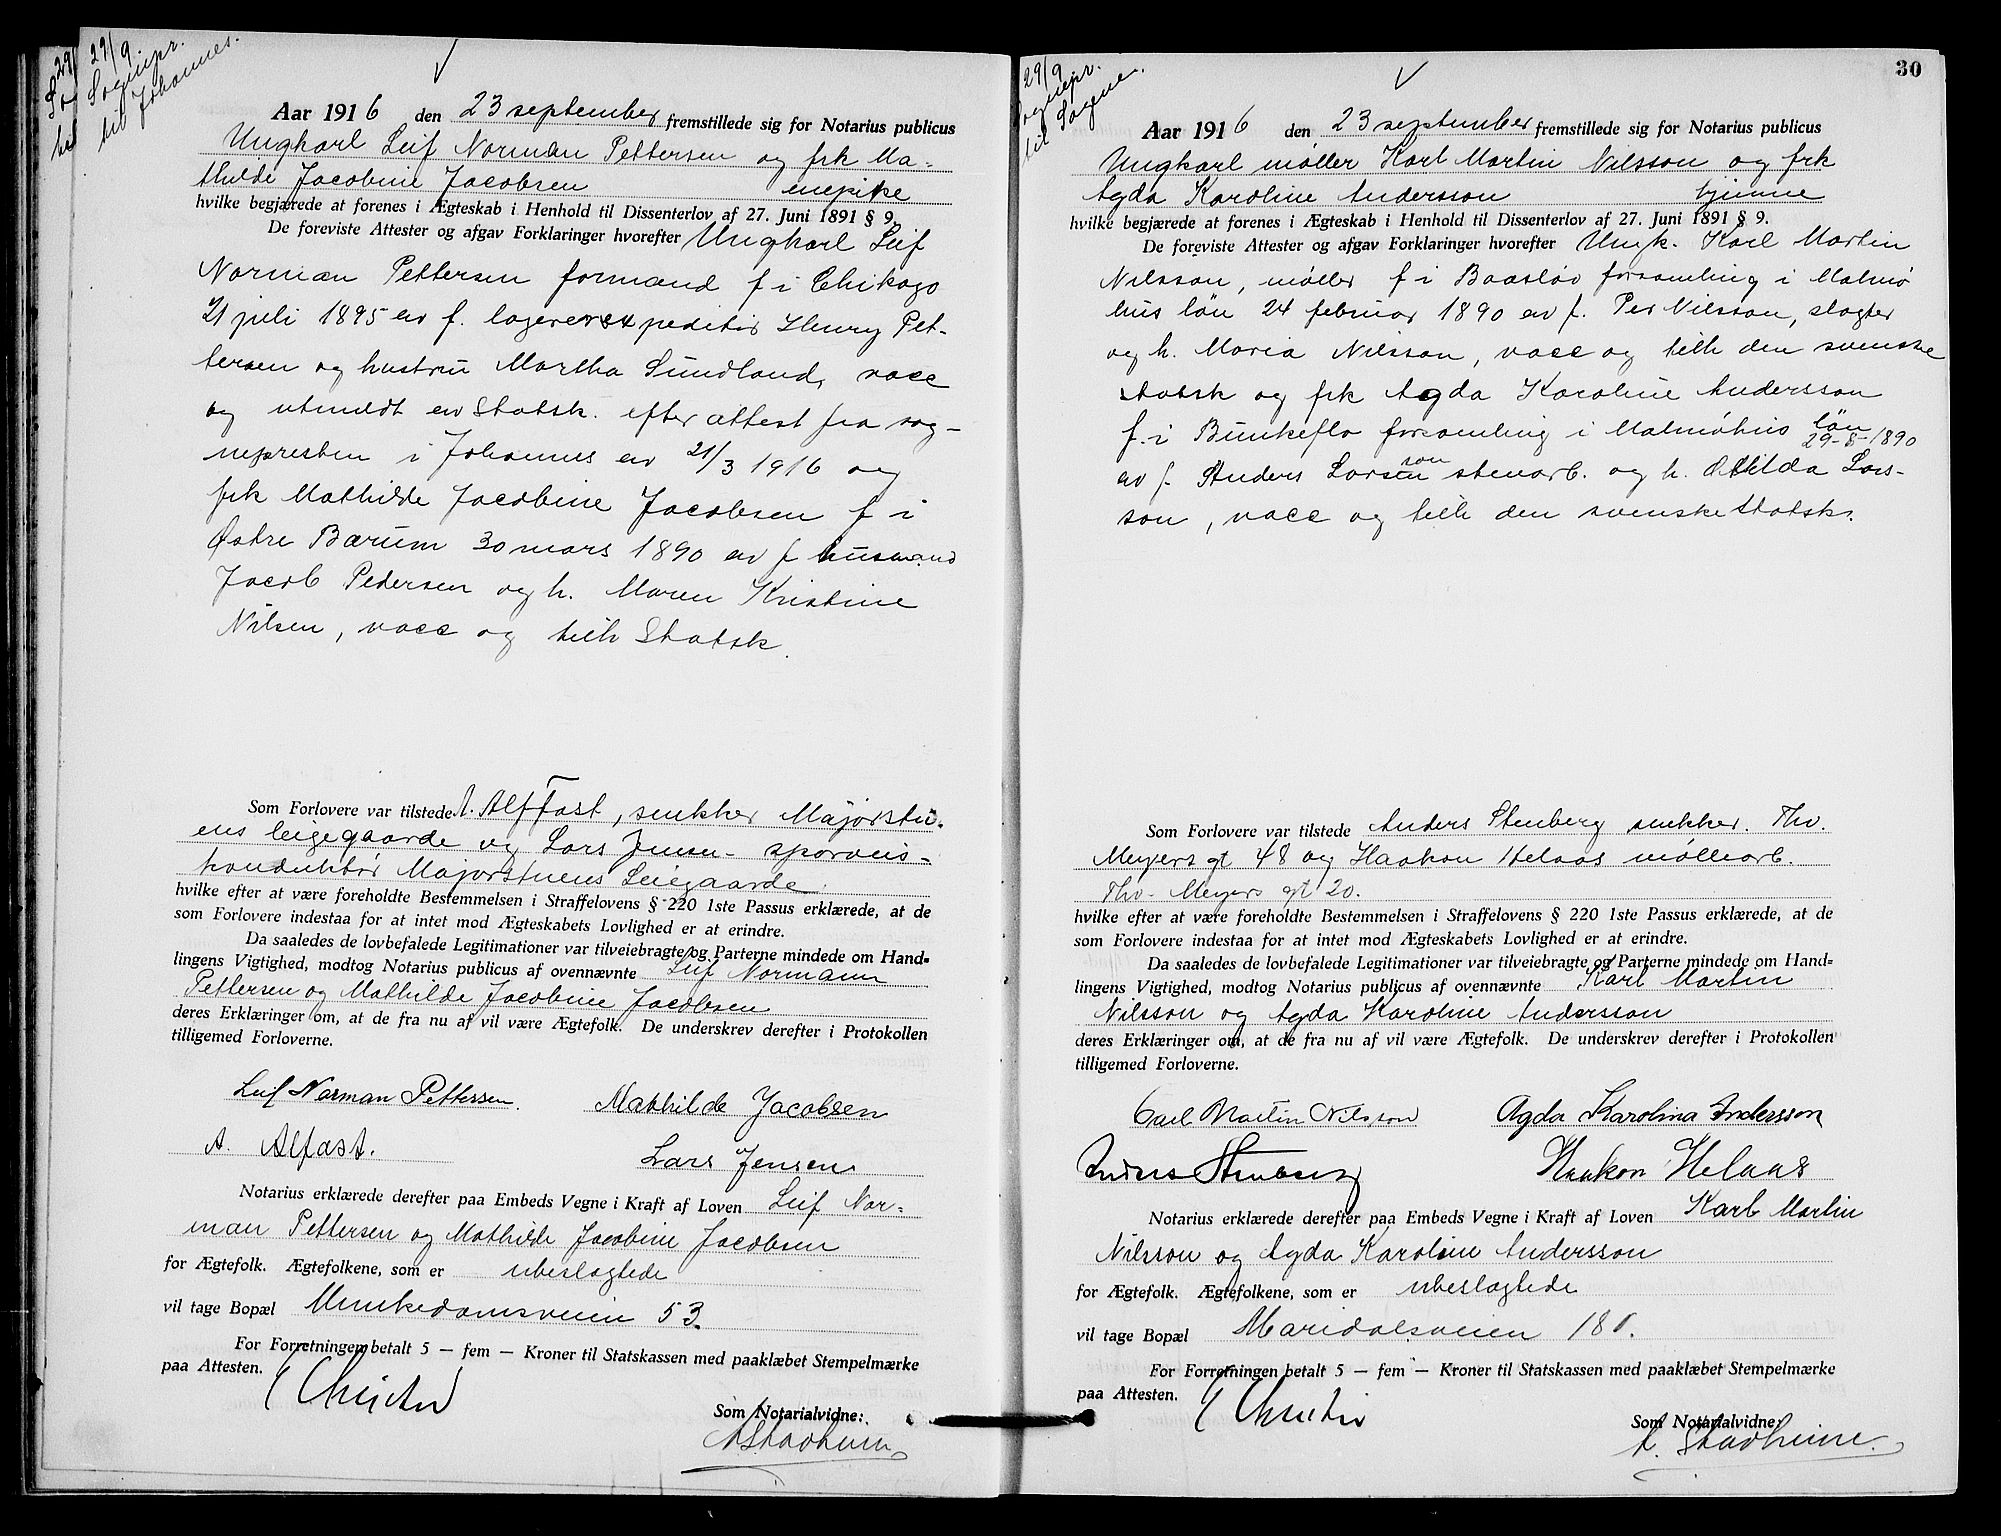 29/9.
Sognepr.
til Johannes.
Aar 1916 den 23 september fremstillede sig for Notarius publicus
Ungkarl Leif Norman Pettersen og frk Ma-
thilde Jacobine Jacobsen enepike
hvilke begjærede at forenes i Ægteskab i Henhold til Dissenterlov af 27. Juni 1891 § 9.
De foreviste Attester og afgav Forklaringer hvorefter Ungkarl Leif
Norman Pettersen formand f i Chikago
21 juli 1895 av f. lagerexpeditør Henry Pet-
tersen og hustru Martha Sundland, vacc
og utmeldt av Statsk. efter attest fra sog-
nepresten i Johannes av 21/3 1916 og
frk Mathilde Jacobine Jacobsen f i
Østre Bærum 30 mars 1890 av f husmand
Jacob Pedersen og h. Maren Kristine
Nilsen, vacc og tilh Statsk.
Som Forlovere var tilstede A. Alffast, snekker Majorstu-
ens leigegaarde og Lars Jensen sporveis-
konduktør Majorstuens Leiegaarde
hvilke efter at være foreholdte Bestemmelsen i Straffelovens § 220 1ste Passus erklærede, at de
som Forlovere indestaa for at intet mod Ægteskabets Lovlighed er at erindre.
Da saaledes de lovbefalede Legitimationer var tilveiebragte og Parterne mindede om Hand-
lingens Vigtighed, modtog Notarius publicus af ovennævnte Leif Normann
Pettersen og Mathilde Jacobine Jacobsen
deres Erklæringer om, at de fra nu af vil være Ægtefolk. De underskrev derefter i Protokollen
tilligemed Forloverne.
Leif Norman Pettersen. Mathilde Jacobsen
A. Alfast. Lars Jensen
Notarius erklærede derefter paa Embeds Vegne i Kraft af Loven Leif Nor-
man Pettersen og Mathilde Jacobine Jacobsen
for Ægtefolk. Ægtefolkene, som er ubeslagtede
vil tage Bopæl Munkedamsveien 53.
For Forretningen betalt 5 — fem — Kroner til Statskassen med paaklæbet Stempelmærke
paa Attesten.
Som Notarialvidne:
30
29/9
Sognepr.
til Sagene.
Aar 1916 den 23 september fremstillede sig for Notarius publicus
Ungkarl møller Karl Martin Nilsson og frk
Agda Karoline Andersson hjemme
hvilke begjærede at forenes i Ægteskab i Henhold til Dissenterlov af 27. Juni 1891 § 9.
De foreviste Attester og afgav Forklaringer hvorefter Ungk. Karl Martin
Nilsson, møller f i Baasløv forsamling i Malmø
hus län 24 februar 1890 av f. Per Nilsson, slagter
og h. Maria Nilsson, vacc og tilh den svenske
statsk og frk Agda Karoline Andersson
f. i Bunkeflo forsamling i Malmøhus län
29-8-1890
av f. Anders Larsson stenarb. og h. Otilda Lars-
son, vacc og tilh den svenske Statsk.
Som Forlovere var tilstede Anders Stenberg snekker. Thv.
Meyers gt 48 og Haakon Helaas møllearb.
Thv. Meyers gt 20.
hvilke efter at være foreholdte Bestemmelsen i Straffelovens § 220 1ste Passus erklærede, at de
som Forlovere indestaa for at intet mod Ægteskabets Lovlighed er at erindre.
Da saaledes de lovbefalede Legitimationer var tilveiebragte og Parterne mindede om Hand-
lingens Vigtighed, modtog Notarius publicus af ovennævnte Karl Martin
Nilsson og Agda Karoline Andersson
deres Erklæringer om, at de fra nu af vil være Ægtefolk. De underskrev derefter i Protokollen
tilligemed Forloverne.
Carl Martin Nilsson Agda Karolina Andersson
Anders Stenberg Haakon Helaas
Notarius erklærede derefter paa Embeds Vegne i Kraft af Loven Karl Martin
Nilsson og Agda Karoline Andersson
for Ægtefolk. Ægtefolkene, som er ubeslagtede
vil tage Bopæl Maridalsveien 180.
For Forretningen betalt 5 — fem — Kroner til Statskassen med paaklæbet Stempelmærke
paa Attesten.
Som Notarialvidne: